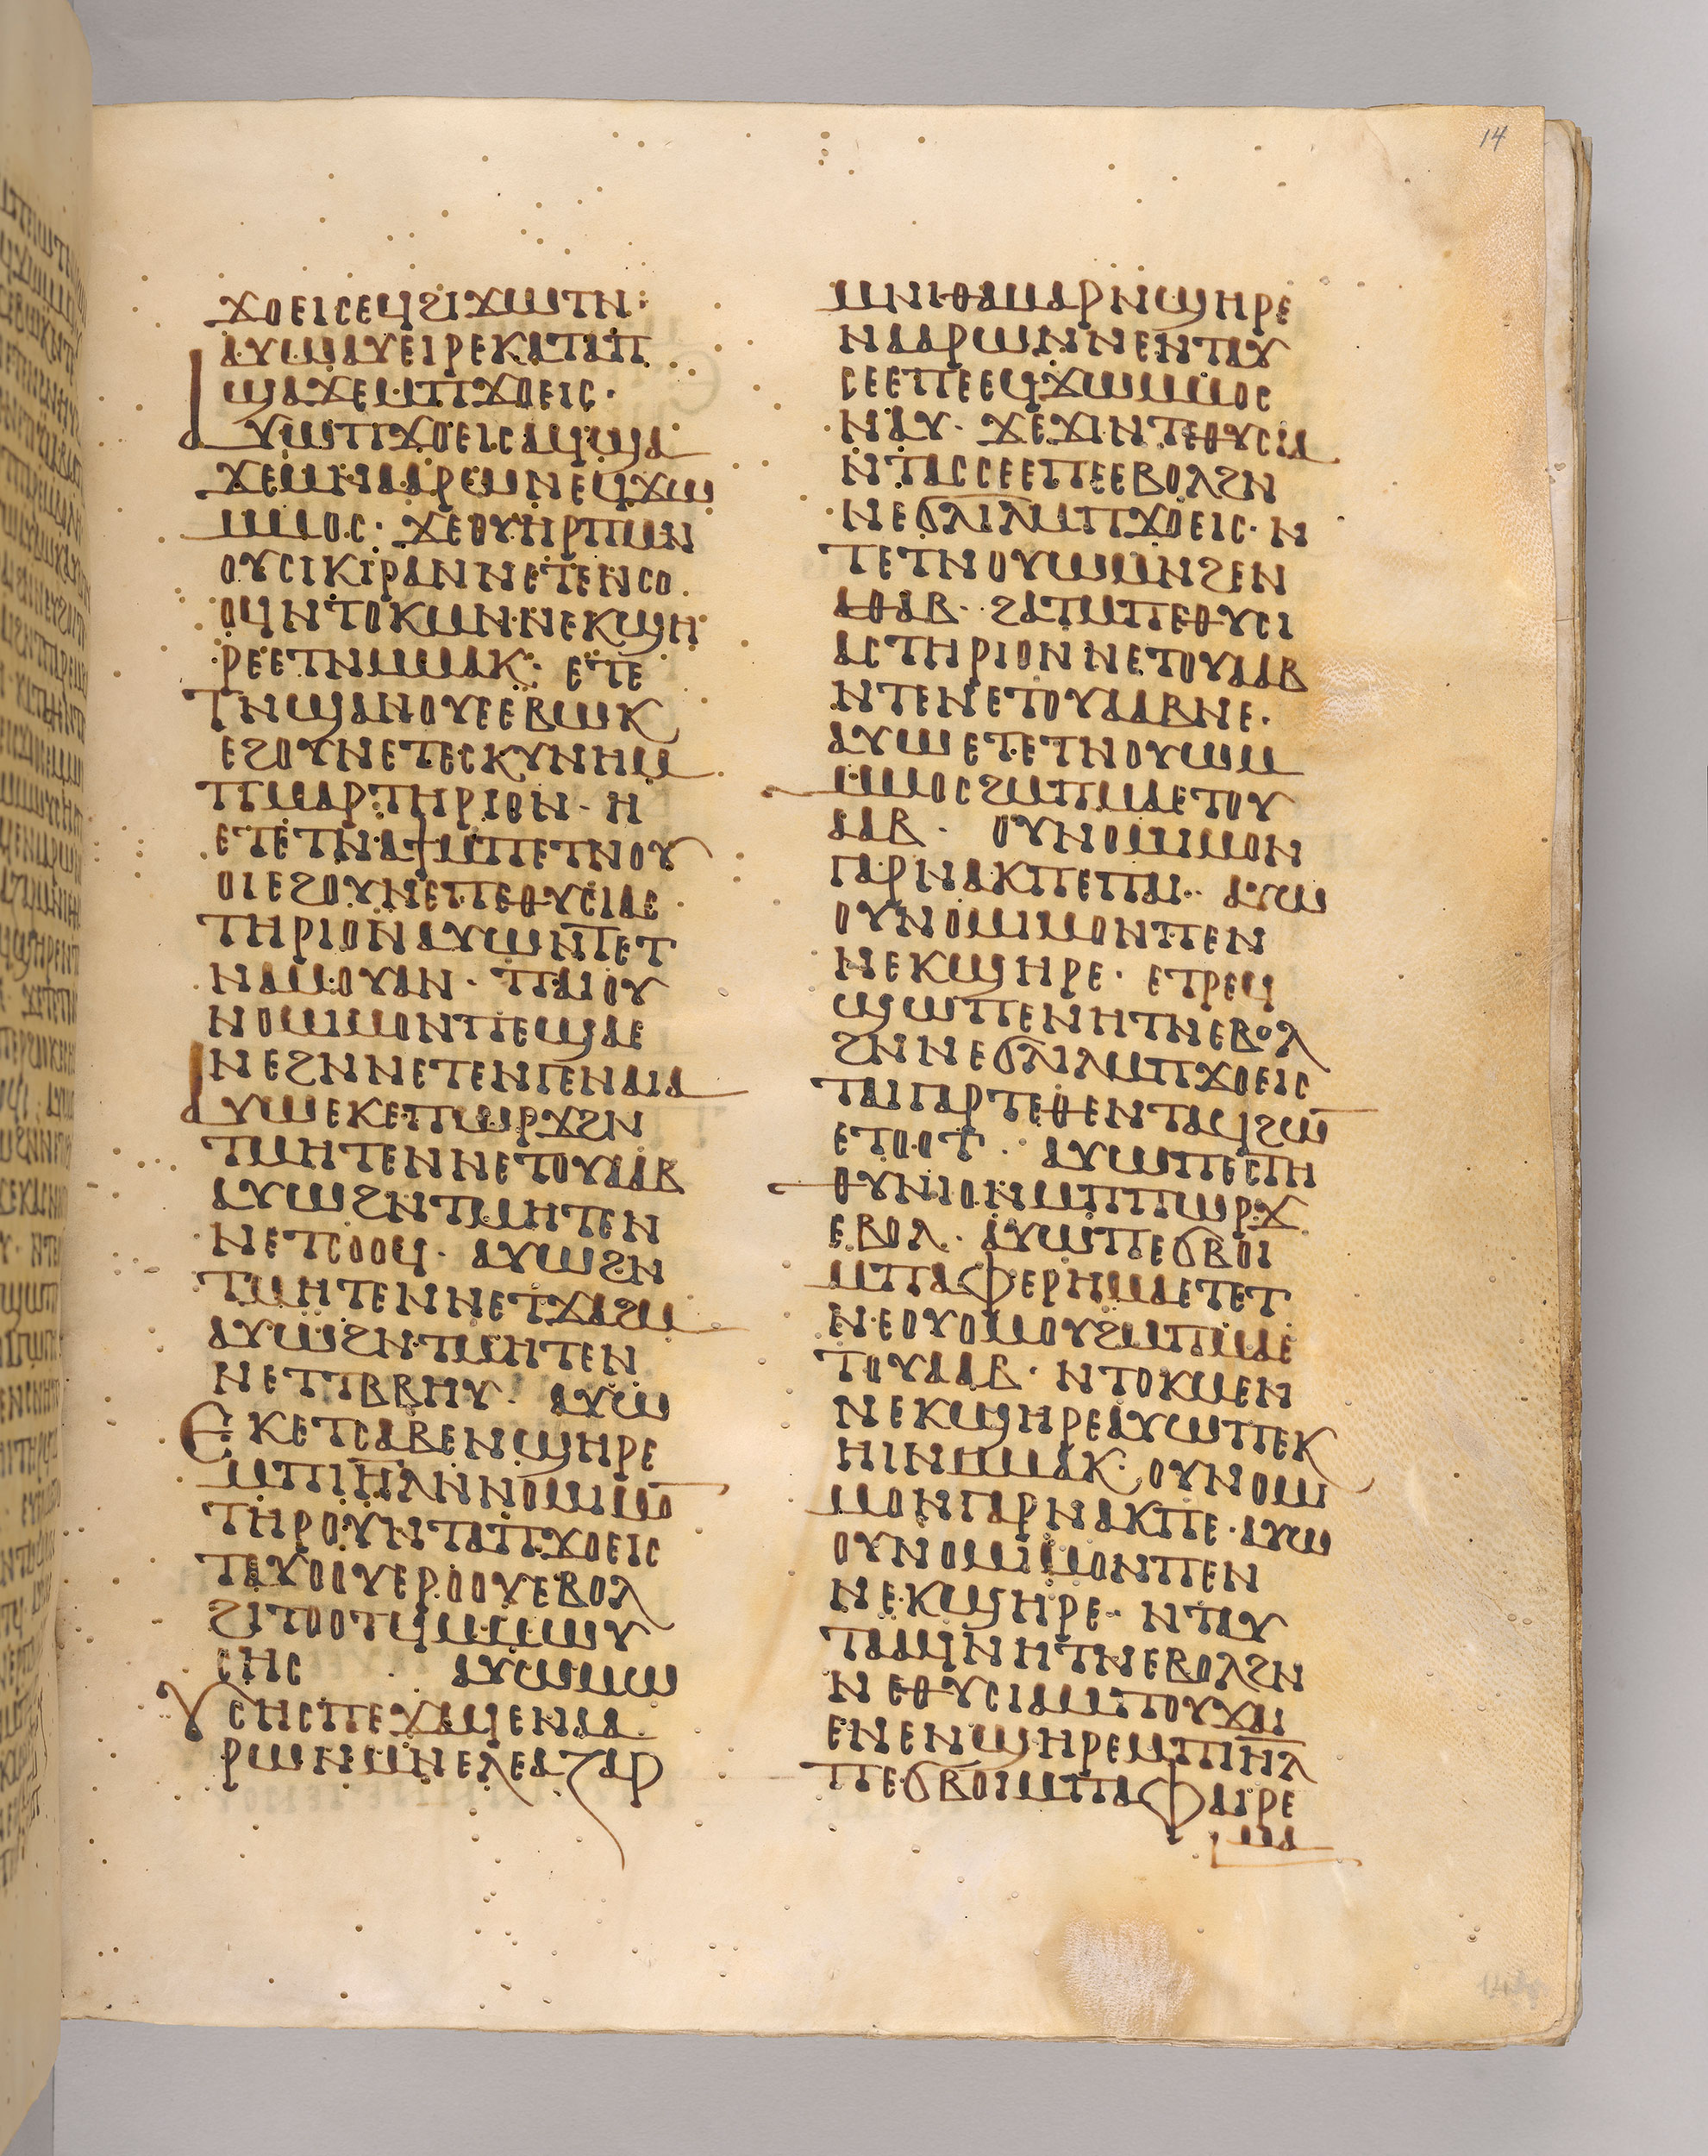 14
ϫⲟⲉⲓⲥⲉϥϩⲓϫⲱⲧⲛ·
ⲁⲩⲱⲁⲩⲉⲓⲣⲉⲕⲁⲧⲁⲡ
ϣⲁϫⲉⲙⲡϫⲟⲉⲓⲥ·
ⲁⲩⲱⲡϫⲟⲉⲓⲥⲁϥϣⲁ
ϫⲉⲙⲛⲁⲁⲣⲱⲛⲉϥϫⲱ
ⲙⲙⲟⲥ· ϫⲉⲟⲩⲏⲣⲡⲙⲛ
ⲟⲩⲥⲓⲕⲓⲣⲁⲛⲛⲉⲧⲉⲛⲥⲟ
ⲟϥⲛⲧⲟⲕⲙⲛⲛⲉⲕϣⲏ
ⲣⲉⲉⲧⲛⲙⲙⲁⲕ· ⲉⲧⲉ
ⲧⲛϣⲁⲛⲟⲩⲉⲉⲃⲱⲕ
ⲉϩⲟⲩⲛⲉⲧⲉⲥⲕⲩⲛⲏⲙ
ⲡⲙⲁⲣⲧⲏⲣⲓⲟⲛ· ⲏ
ⲉⲧⲉⲧⲛⲁϯⲙⲡⲉⲧⲛⲟⲩ
ⲟⲓⲉϩⲟⲩⲛⲉⲡⲉⲑⲩⲥⲓⲁⲥ
ⲧⲏⲣⲓⲟⲛⲁⲩⲱⲛⲧⲉⲧ
ⲛⲁⲙⲟⲩⲁⲛ· ⲡⲁⲓⲟⲩ
ⲛⲟⲙⲓⲙⲟⲛⲡⲉϣⲁⲉ
ⲛⲉϩⲛⲛⲉⲧⲉⲛⲅⲉⲛⲁⲓⲁ
ⲁⲩⲱⲉⲕⲉⲡⲱⲣϫϩⲛ
ⲧⲙⲏⲧⲉⲛⲛⲉⲧⲟⲩⲁⲁⲃ
ⲁⲩⲱϩⲛⲧⲙⲏⲧⲉⲛ
ⲛⲉⲧⲥⲟⲟϥ· ⲁⲩⲱϩⲛ
ⲧⲙⲏⲧⲉⲛⲛⲉⲧϫⲁϩⲙ
ⲁⲩⲱϩⲛⲧⲙⲏⲧⲉⲛ
ⲛⲉⲧⲧⲃⲃⲏⲩ· ⲁⲩⲱ
ⲉⲕⲉⲧⲥⲁⲃⲉⲛϣⲏⲣⲉ
ⲙⲡⲓⲏⲗⲛⲛⲟⲙⲓⲙⲟ̄
ⲧⲏⲣⲟⲩⲛⲧⲁⲡϫⲟⲉⲓⲥ
ⲧⲁⲩⲟⲟⲩⲉⲣⲟⲟⲩⲉⲃⲟⲗ
ϩⲓⲧⲟⲟⲧϥⲙⲙⲱⲩ
ⲥⲏⲥ ⲁⲩⲱⲙⲱ
ⲩⲥⲏⲥⲡⲉϫⲁϥⲉⲛⲁⲁ
ⲣⲱⲛⲙⲛⲉⲗⲉⲁⲍⲁⲣ
ⲙⲛⲓⲑⲁⲙⲁⲣⲛϣⲏⲣⲉ
ⲛⲁⲁⲣⲱⲛⲛⲉⲛⲧⲁⲩ
ⲥⲉⲉⲡⲉⲉϥϫⲱⲙⲙⲟⲥ
ⲛⲁⲩ· ϫⲉϫⲓⲛⲧⲉⲑⲩⲥⲓⲁ
ⲛⲧⲁⲥⲥⲉⲉⲡⲉⲉⲃⲟⲗϩⲛ
ⲛⲉϭⲗⲓⲗⲙⲡϫⲟⲉⲓⲥ· ⲛ
ⲧⲉⲧⲛⲟⲩⲱⲙⲛϩⲉⲛ
ⲁⲑⲁⲃ· ϩⲁⲧⲙⲡⲉⲑⲩⲥⲓ
ⲁⲥⲧⲏⲣⲓⲟⲛⲛⲉⲧⲟⲩⲁⲁⲃ
ⲛⲧⲉⲛⲉⲧⲟⲩⲁⲁⲃⲛⲉ·
ⲁⲩⲱⲉⲧⲉⲧⲛⲟⲩⲱⲙ
ⲙⲙⲟⲥϩⲙⲡⲙⲁⲉⲧⲟⲩ
ⲁⲁⲃ· ⲟⲩⲛⲟⲙⲓⲙⲟⲛ
ⲅⲁⲣⲛⲁⲕⲡⲉⲡⲁⲓ· ⲁⲩⲱ
ⲟⲩⲛⲟⲙⲓⲙⲟⲛⲡⲉⲛ
ⲛⲉⲕϣⲏⲣⲉ· ⲉⲧⲣⲉϥ
ϣⲱⲡⲉⲛⲏⲧⲛⲉⲃⲟⲗ
ϩⲛⲛⲉϭⲗⲓⲗⲙⲡϫⲟⲉⲓⲥ
ⲧⲁⲓⲅⲁⲣⲧⲉⲑⲉⲛⲧⲁϥϩⲱ̄
ⲉⲧⲟⲟⲧ· ⲁⲩⲱⲡⲉⲥⲧⲏ
ⲑⲩⲛⲓⲟⲛⲙⲡⲡⲱⲣϫ
ⲉⲃⲟⲗ· ⲁⲩⲱⲡⲉϭⲃⲟⲓ
ⲙⲡⲁⲫⲉⲣⲏⲙⲁⲉⲧⲉⲧ
ⲛⲉⲟⲩⲟⲙⲟⲩϩⲙⲡⲙⲁⲉ
ⲧⲟⲩⲁⲁⲃ· ⲛⲧⲟⲕⲙⲉⲛ
ⲛⲉⲕϣⲏⲣⲉⲁⲩⲱⲡⲉⲕ
ⲏⲓⲛⲙⲙⲁⲕ· ⲟⲩⲛⲟⲙ
ⲙⲟⲛⲅⲁⲣⲛⲁⲕⲡⲉ· ⲁⲩⲱ
ⲟⲩⲛⲟⲙⲓⲙⲟⲛⲡⲉⲛ
ⲛⲉⲕϣⲏⲣⲉ· ⲛⲧⲁⲩ
ⲧⲁⲁϥⲛⲏⲧⲛⲉⲃⲟⲗϩⲛ
ⲛⲉⲑⲩⲥⲓⲁⲙⲡⲟⲩϫⲁⲓ
ⲉⲛⲉⲛϣⲏⲣⲉⲙⲡⲓⲏⲗ
ⲡⲉϭⲃⲟⲓⲙⲡⲁⲫⲁⲓⲣⲉ
ⲙⲁ